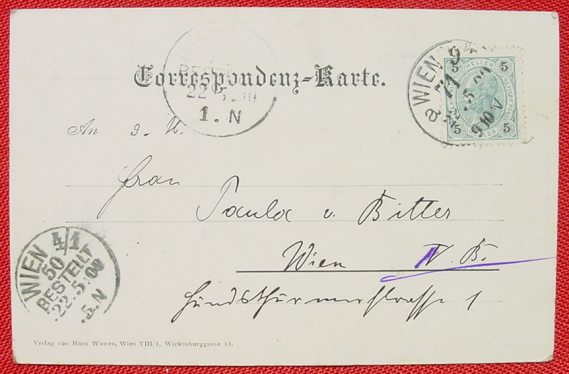 Correspondenz-Karte.
BESTELLT
22.5.00
1.N
WIEN 9/4
71
5
HELLER
5
5
5
9 10 V
An
Frau
Paula v. Bitter
Wien IV. B.
Hundsthurmerstrasse 1
WIEN 4/1
50
BESTELLT
22.5.00
5.N
Verlag von Hans Wawra, Wien VIII/1, Wickenburggasse 14.